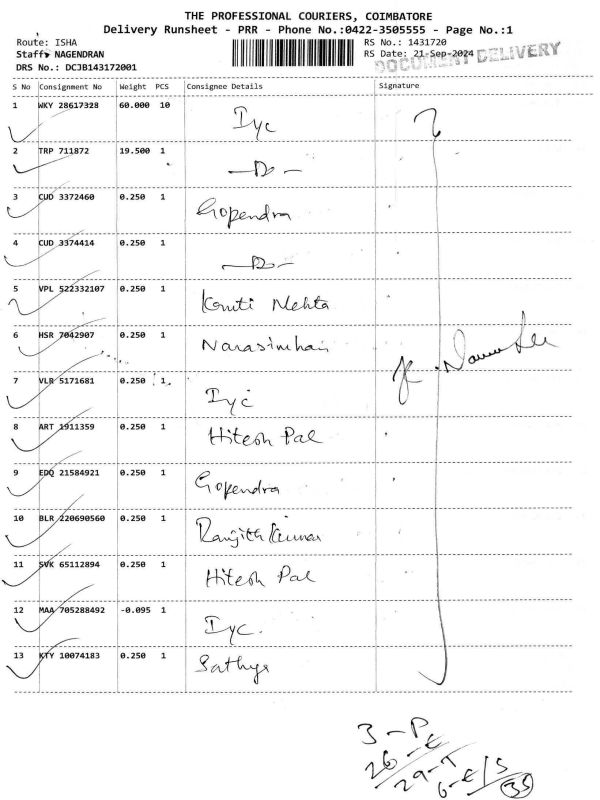 THE PROFESSIONAL COURIERS, COIMBATORE
Delivery Runsheet - PRR - Phone No.:0422-3505555 - Page No.:1
Route: ISHA
RS No.: 1431720
Staff: NAGENDRAN
RS Date: 21-Sep-2024
DOCUMENT DELIVERY
DRS No.: DCJB143172001
S No Consignment No Weight PCS Consignee Details Signature
1 WKY 28617328 60.000 10 Iyc
2 TRP 711872 19.500 1 —Do—
3 CUD 3372460 0.250 1 Gopendra
4 CUD 3374414 0.250 1 —Do—
5 VPL 522332107 0.250 1 Kruti Mehta
6 HSR 7042907 0.250 1 Narasimhan
7 VLR 5171681 0.250 1 Iyc
8 ART 1911359 0.250 1 Hitesh Pal
9 EDQ 21584921 0.250 1 Gopendra
10 BLR 220690560 0.250 1 Ranjith Kumar
11 SVK 65112894 0.250 1 Hitesh Pal
12 MAA 705288492 -0.095 1 Iyc.
13 KTY 10074183 0.250 1 Sathya
3 - P
26 - E
29 - T
6 - E/S
35